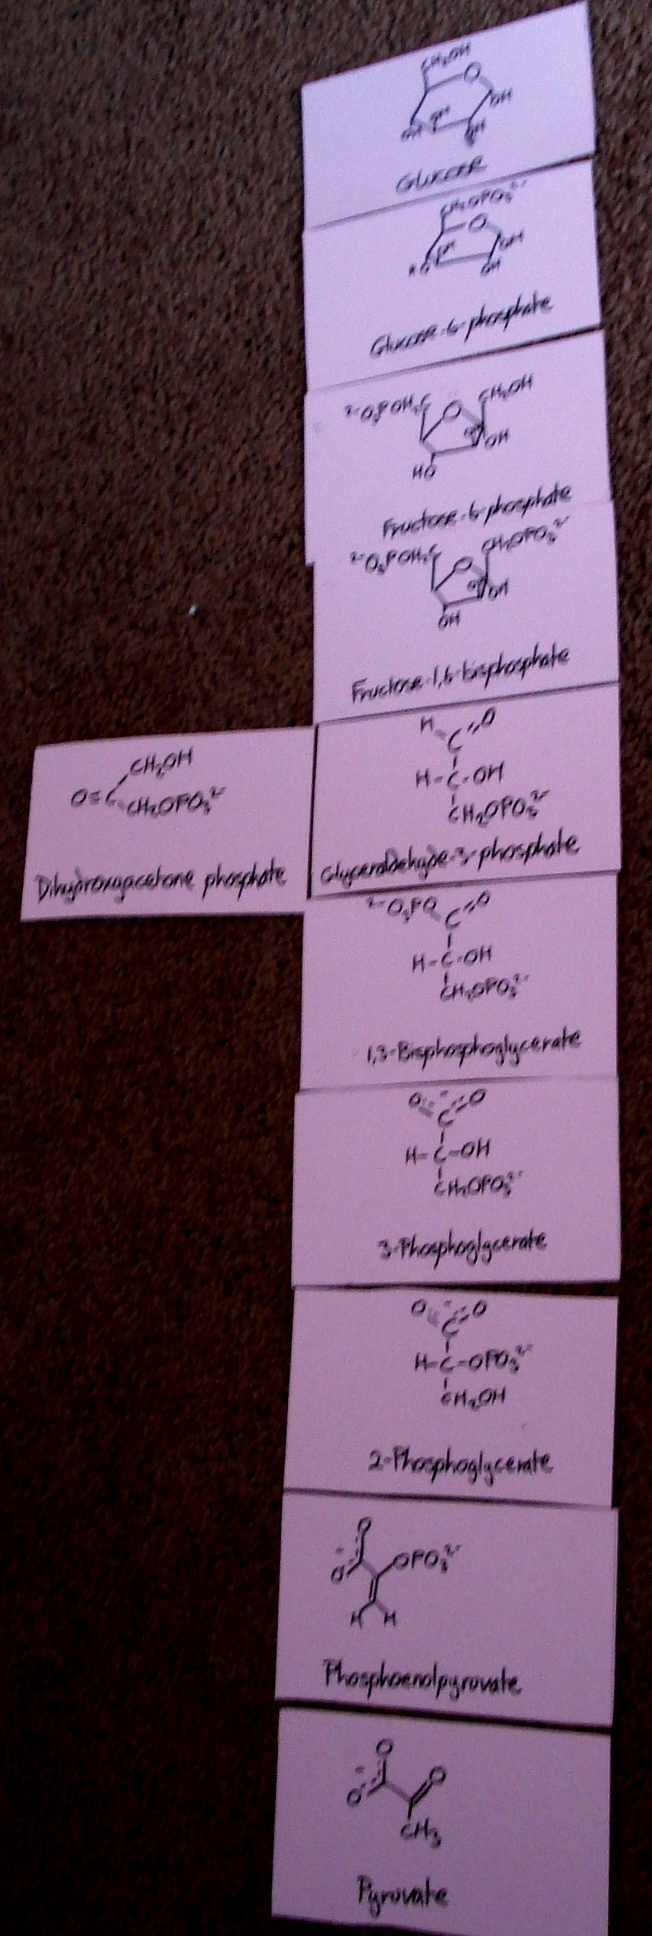 CH₂OH
O
OH
OH OH OH
Glucose
CH₂OPO₃²⁻
O
OH OH
HO OH
Glucose-6-phosphate
²⁻O₃POH₂C O CH₂OH
OH OH
HO
Fructose-6-phosphate
²⁻O₃POH₂C O CH₂OPO₃²⁻
OH OH
OH
Fructose-1,6-bisphosphate
CH₂OH
O=C
CH₂OPO₃²⁻
Dihydroxyacetone phosphate
H O
C
H-C-OH
CH₂OPO₃²⁻
Glyceraldehyde-3-phosphate
²⁻O₃PO O
C
H-C-OH
CH₂OPO₃²⁻
1,3-Bisphosphoglycerate
O - O
C
H-C-OH
CH₂OPO₃²⁻
3-Phosphoglycerate
O - O
C
H-C-OPO₃²⁻
CH₂OH
2-Phosphoglycerate
O
- OPO₃²⁻
O
H H
Phosphoenolpyruvate
O
- O
O
CH₃
Pyruvate